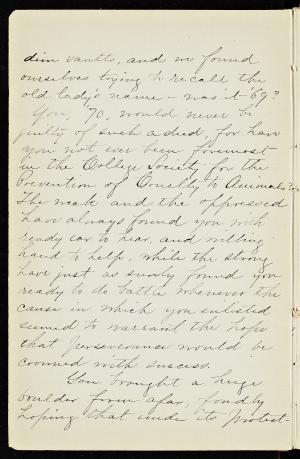 dim vaults, and we found
ourselves trying to recall the
old lady's name – was it '69?
You, '70, would never be
guilty of such a deed, for have
you not ever been foremost
in the College Society for the
Prevention of Cruelty to Animals?
The weak and the oppressed
have always found you with
ready ear to hear, and willing
hand to help, while the strong
have just as surely found you
ready to do battle whenever the
cause in which you enlisted
seemed to warrant the hope
that perseverance would be
crowned with success.
You brought a huge
boulder from afar, fondly
hoping that under its protect-